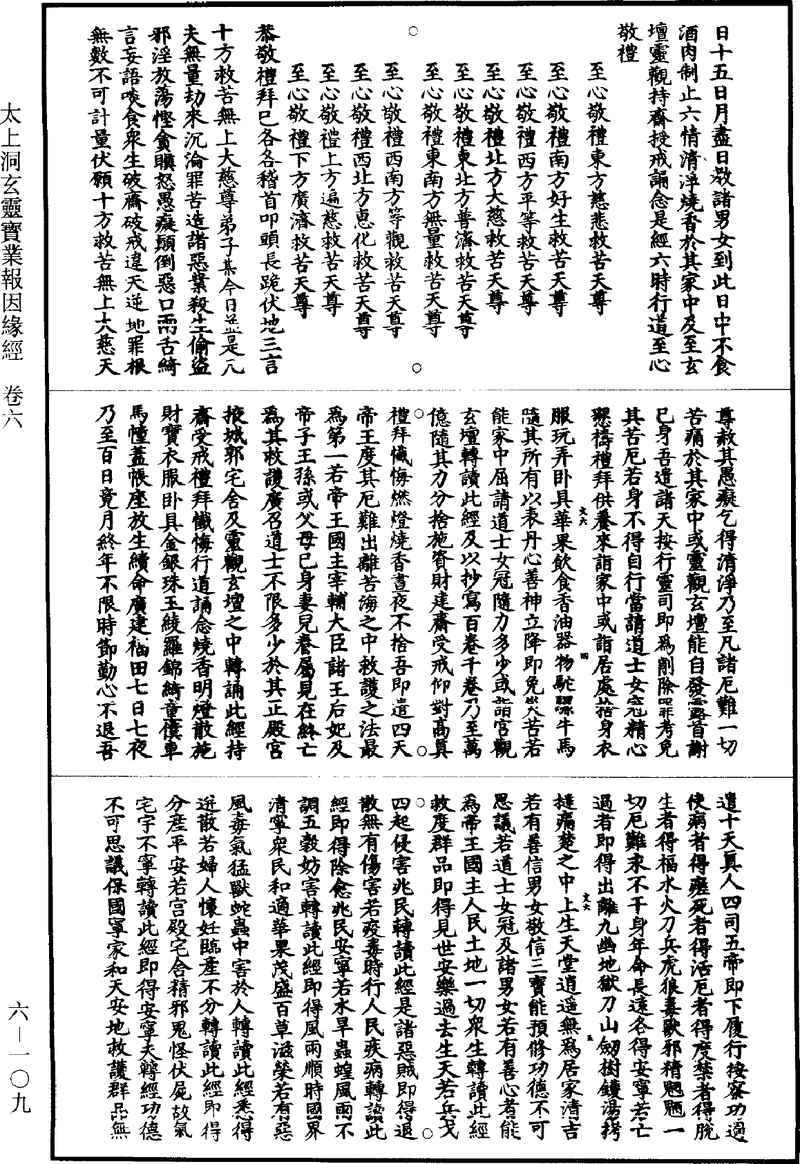 日十五日月盡日教諸男女到此日中不食
酒肉制止六情清淨燒香於其家中及至玄
壇靈觀持齋授戒誦念是經六時行道至心
敬禮
至心敬禮東方慈悲救苦天尊
至心敬禮南方好生救苦天尊
至心敬禮西方平等救苦天尊
至心敬禮北方大慈救苦天尊
至心敬禮東北方普濟救苦天尊
至心敬禮東南方無量救苦天尊
至心敬禮西南方等觀救苦天尊
至心敬禮西北方惠化救苦天尊
至心敬禮上方遍慈救苦天尊
至心敬禮下方廣濟救苦天尊
恭敬禮拜已各各稽首叩頭長跪伏地三言
十方救苦無上大慈尊弟子某今日並是凡
夫無量劫來沉淪罪苦造諸惡業殺生偷盜
邪淫放蕩慳貪瞋怒愚癡顛倒惡口兩舌綺
言妄語噉食衆生破齋破戒違天逆地罪根
無數不可計量伏願十方救苦無上大慈天
尊赦其愚癡乞得清淨乃至凡諸厄難一切
苦痛於其家中或靈觀玄壇能自發露首謝
己身吾遣諸天按行靈司即為削除罪考免
其苦厄若身不得自行當請道士女冠精心
懇禱禮拜供養來詣家中或詣居處捨身衣
服玩弄卧具華果飲食香油器物駝騾牛馬
隨其所有以表丹心善神立降即免災苦若
能家中屈請道士女冠隨力多少或詣宮觀
玄壇轉讀此經及以抄寫百卷千卷乃至萬
億隨其力分捨施資財建齋受戒仰對高真
禮拜懺悔燃燈燒香晝夜不捨吾即遣四天
帝王度其厄難出離苦海之中救護之法最
為第一若帝王國主宰輔大臣諸王后妃及
帝子王孫或父母己身妻兒眷屬見在終亡
為其救護廣召道士不限多少於其正殿宮
掖城郭宅舍及靈觀玄壇之中轉誦此經持
齋受戒禮拜懺悔行道誦念燒香明燈散施
財寶衣服卧具金銀珠玉綾羅錦綺童僕車
馬幢蓋帳座放生續命廣建福田七日七夜
乃至百日竟月終年不限時節勤心不退吾
遣十天真人四司五帝即下履行按察功過
使病者得瘥死者得活厄者得度禁者得脫
生者得福水火刀兵虎狼毒獸邪精魍魎一
切厄難來不干身年命長遠各得安寧若亡
過者即得出離九幽地獄刀山劒樹鑊湯拷
撻痛楚之中上生天堂逍遥無為居家清吉
若有善信男女敬信三寶能預修功德不可
思議若道士女冠及諸男女若有善心者能
為帝王國主人民土地一切衆生轉讀此經
救度群品即得見世安樂過去生天若兵戈
四起侵害兆民轉讀此經是諸惡賊即得退
散無有傷害若疫毒時行人民疾病轉讀此
經即得除愈兆民安寧若水旱蟲蝗風雨不
調五穀妨害轉讀此經即得風雨順時國界
清寧衆民和適華果茂盛百草滋榮若有惡
風毒氣猛獸蛇蟲中害於人轉讀此經悉得
迸散若婦人懷妊臨產不分轉讀此經即得
分產平安若宮殿宅舍精邪鬼怪伏屍故氣
宅宇不寧轉讀此經即得安寧夫轉經功德
不可思議保國寧家和天安地救護群品無
太上洞玄靈寶業報因緣經　卷六
六—一〇九